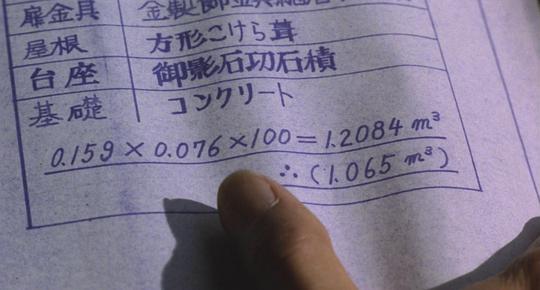 扉金具 金製御金具
屋根 方形こけら葺
台座 御影石切石積
基礎 コンクリート
0.159 × 0.076 × 100 = 1.2084 m³
∴ (1.065 m³)